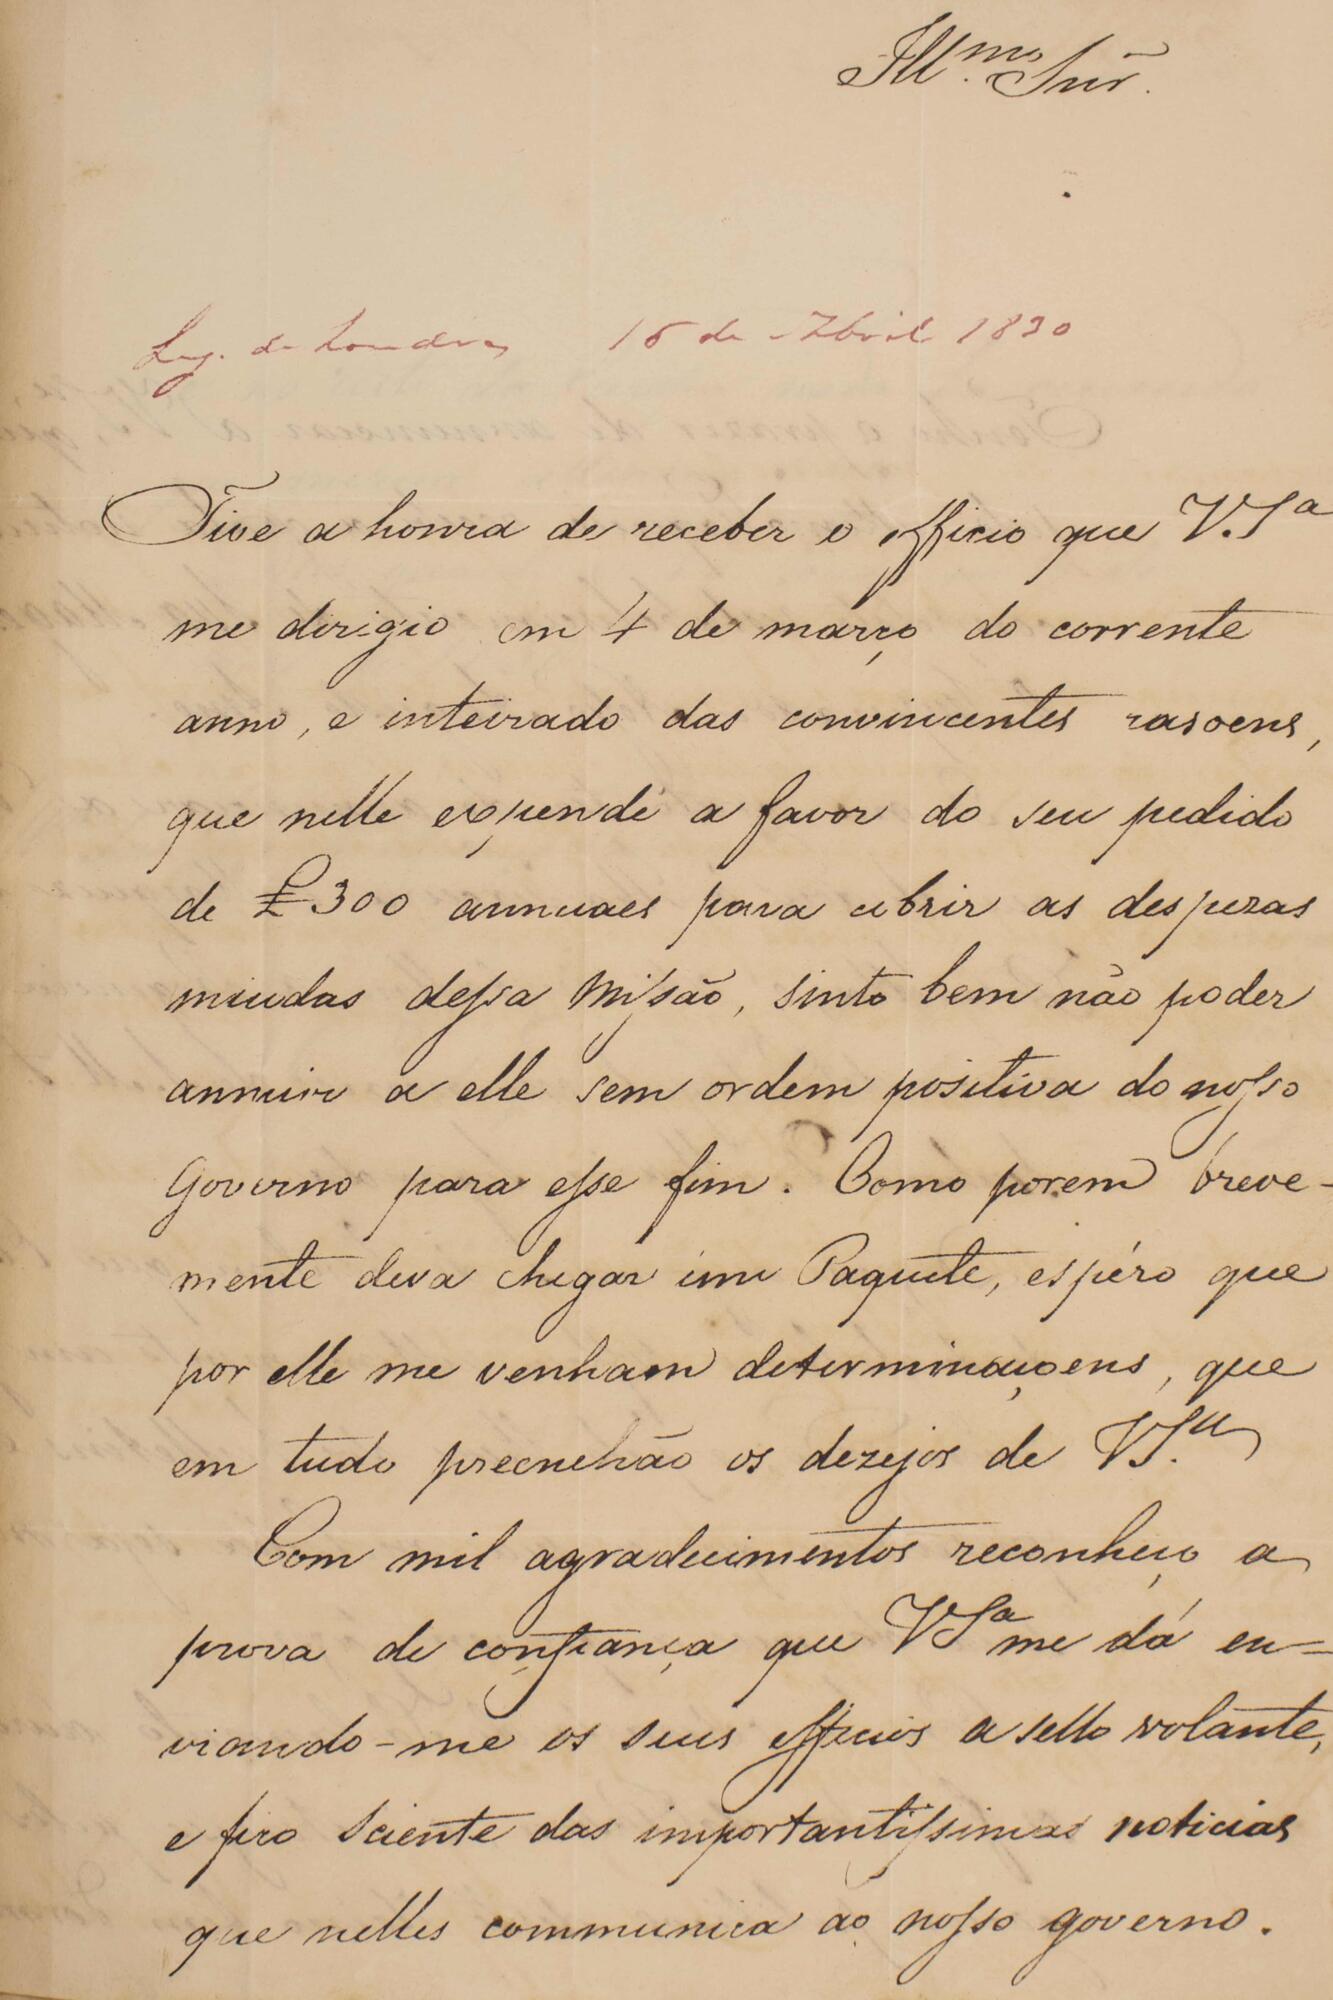 Ill.mo Snr.
Leg. de Londres 16 de Abril 1830
Tive a honra de receber o officio que V.Sa
me dirigio em 4 de março do corrente
anno, e inteirado das convincentes rasoens,
que nelle expende a favor do seu pedido
de £300 annuaes para cobrir as despezas
miudas dessa Missão, sinto bem não poder
annuir a elle sem ordem positiva do nosso
Governo para esse fim. Como porem breve-
mente deva chegar um Paquete, espéro que
por elle me venham determinaçoens, que
em tudo preenchão os dezejos de VS.a
Com mil agradecimentos reconheço a
prova de confiança que VSa me dá en-
viando-me os seus officios a sello volante,
e fico sciente das importantissimas noticias
que nelles communica ao nosso governo.